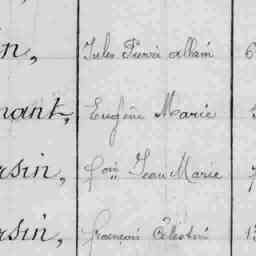 in, Jules Pierre allain 6
nant, Eugène Marie
rsin, Jean Marie 7
rsin, François Célestin 13